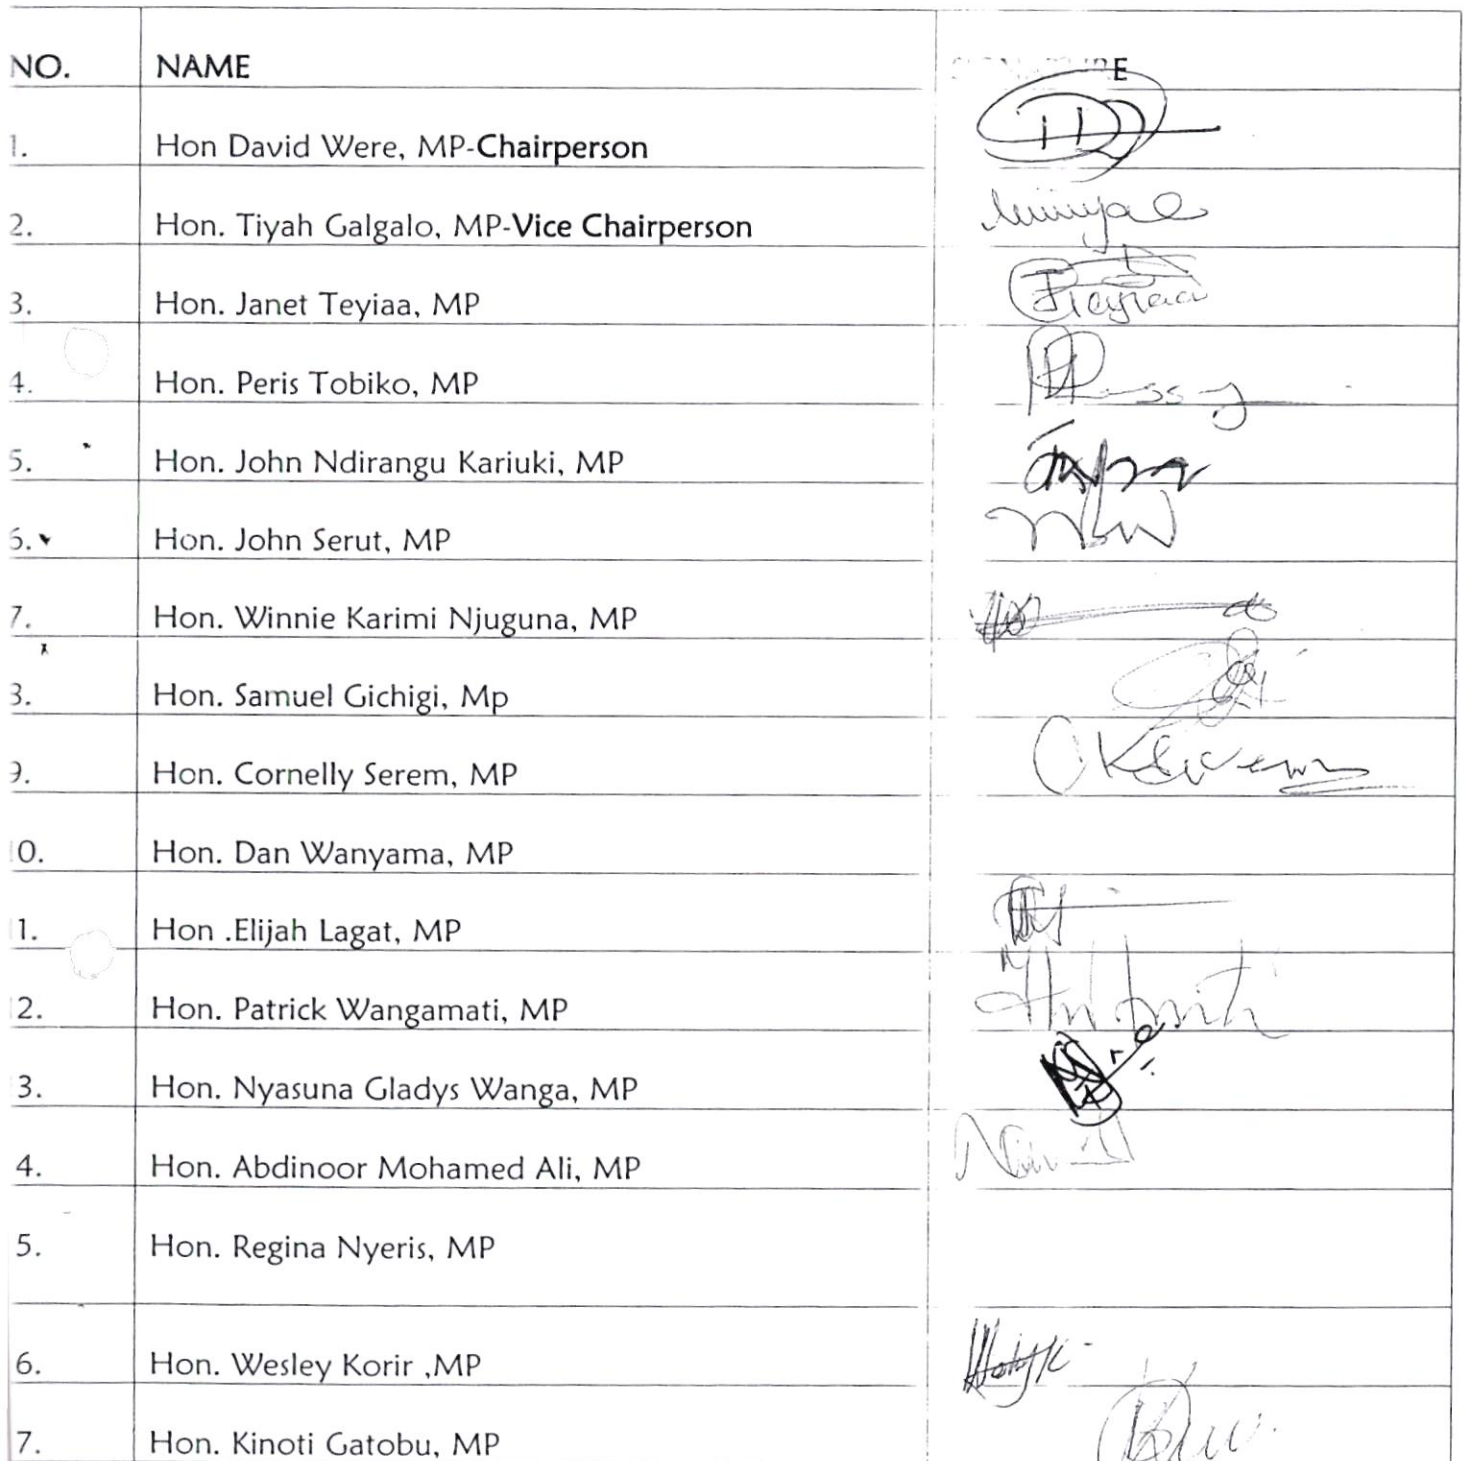 NO. NAME E
1. Hon David Were, MP-Chairperson
2. Hon. Tiyah Galgalo, MP-Vice Chairperson
3. Hon. Janet Teyiaa, MP
4. Hon. Peris Tobiko, MP
5. Hon. John Ndirangu Kariuki, MP
6. Hon. John Serut, MP
7. Hon. Winnie Karimi Njuguna, MP
8. Hon. Samuel Gichigi, Mp
9. Hon. Cornelly Serem, MP
10. Hon. Dan Wanyama, MP
11. Hon .Elijah Lagat, MP
2. Hon. Patrick Wangamati, MP
3. Hon. Nyasuna Gladys Wanga, MP
4. Hon. Abdinoor Mohamed Ali, MP
5. Hon. Regina Nyeris, MP
6. Hon. Wesley Korir ,MP
7. Hon. Kinoti Gatobu, MP